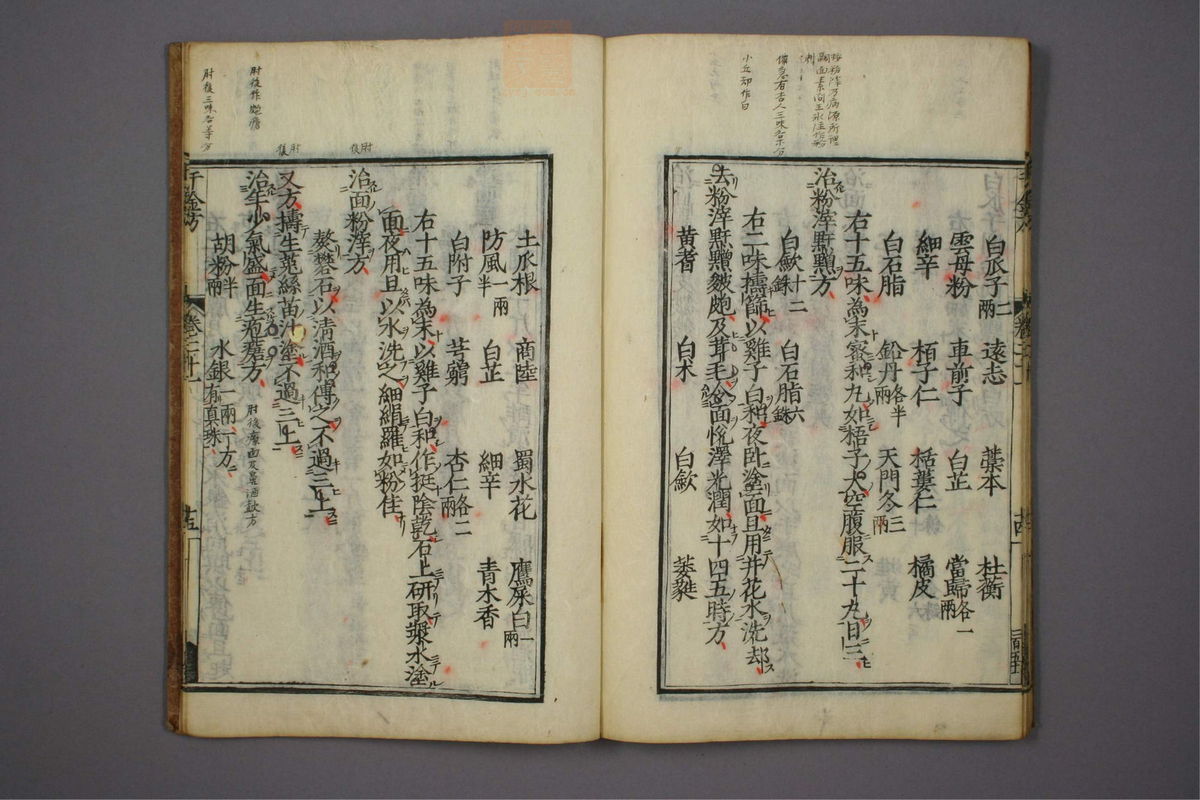 白瓜子二兩 遠志 藁本 杜衡
雲母粉 車前子 白芷 當歸各一兩
細辛 栢子仁 栝蔞仁 橘皮
白石脂 鉛丹各半兩 天門冬三兩
右十五味為末蜜和丸如梧子大空腹服二十丸日三
治粉滓䵟䵳方
白歛十二銖 白石脂六銖
右二味擣篩以雞子白和夜卧塗面旦用井花水洗却
去粉滓䵟䵳皴皰及茸毛令面悅澤光潤如十四五時方
黃耆 白术 白歛 葳蕤
土瓜根 商陸 蜀水花 鷹屎白一兩
防風一兩半 白芷 細辛 青木香
白附子 芎藭 杏仁各二兩
右十五味為末以雞子白和作挺陰乾石上研取漿水塗
面夜用旦以水洗之細絹羅如粉佳
治面粉滓方
熬礬石以清酒和傅之不過三上
又方擣生菟絲苗汁塗不過三上
治年少氣盛面生皰瘡方
胡粉半兩 水銀一兩一方有真珠
千金方 卷
小丘却作白
備急有杏人三味各等分
肘後
肘後
肘後作皰瘡
肘後三味各等分
肘後療面及鼻酒皶方